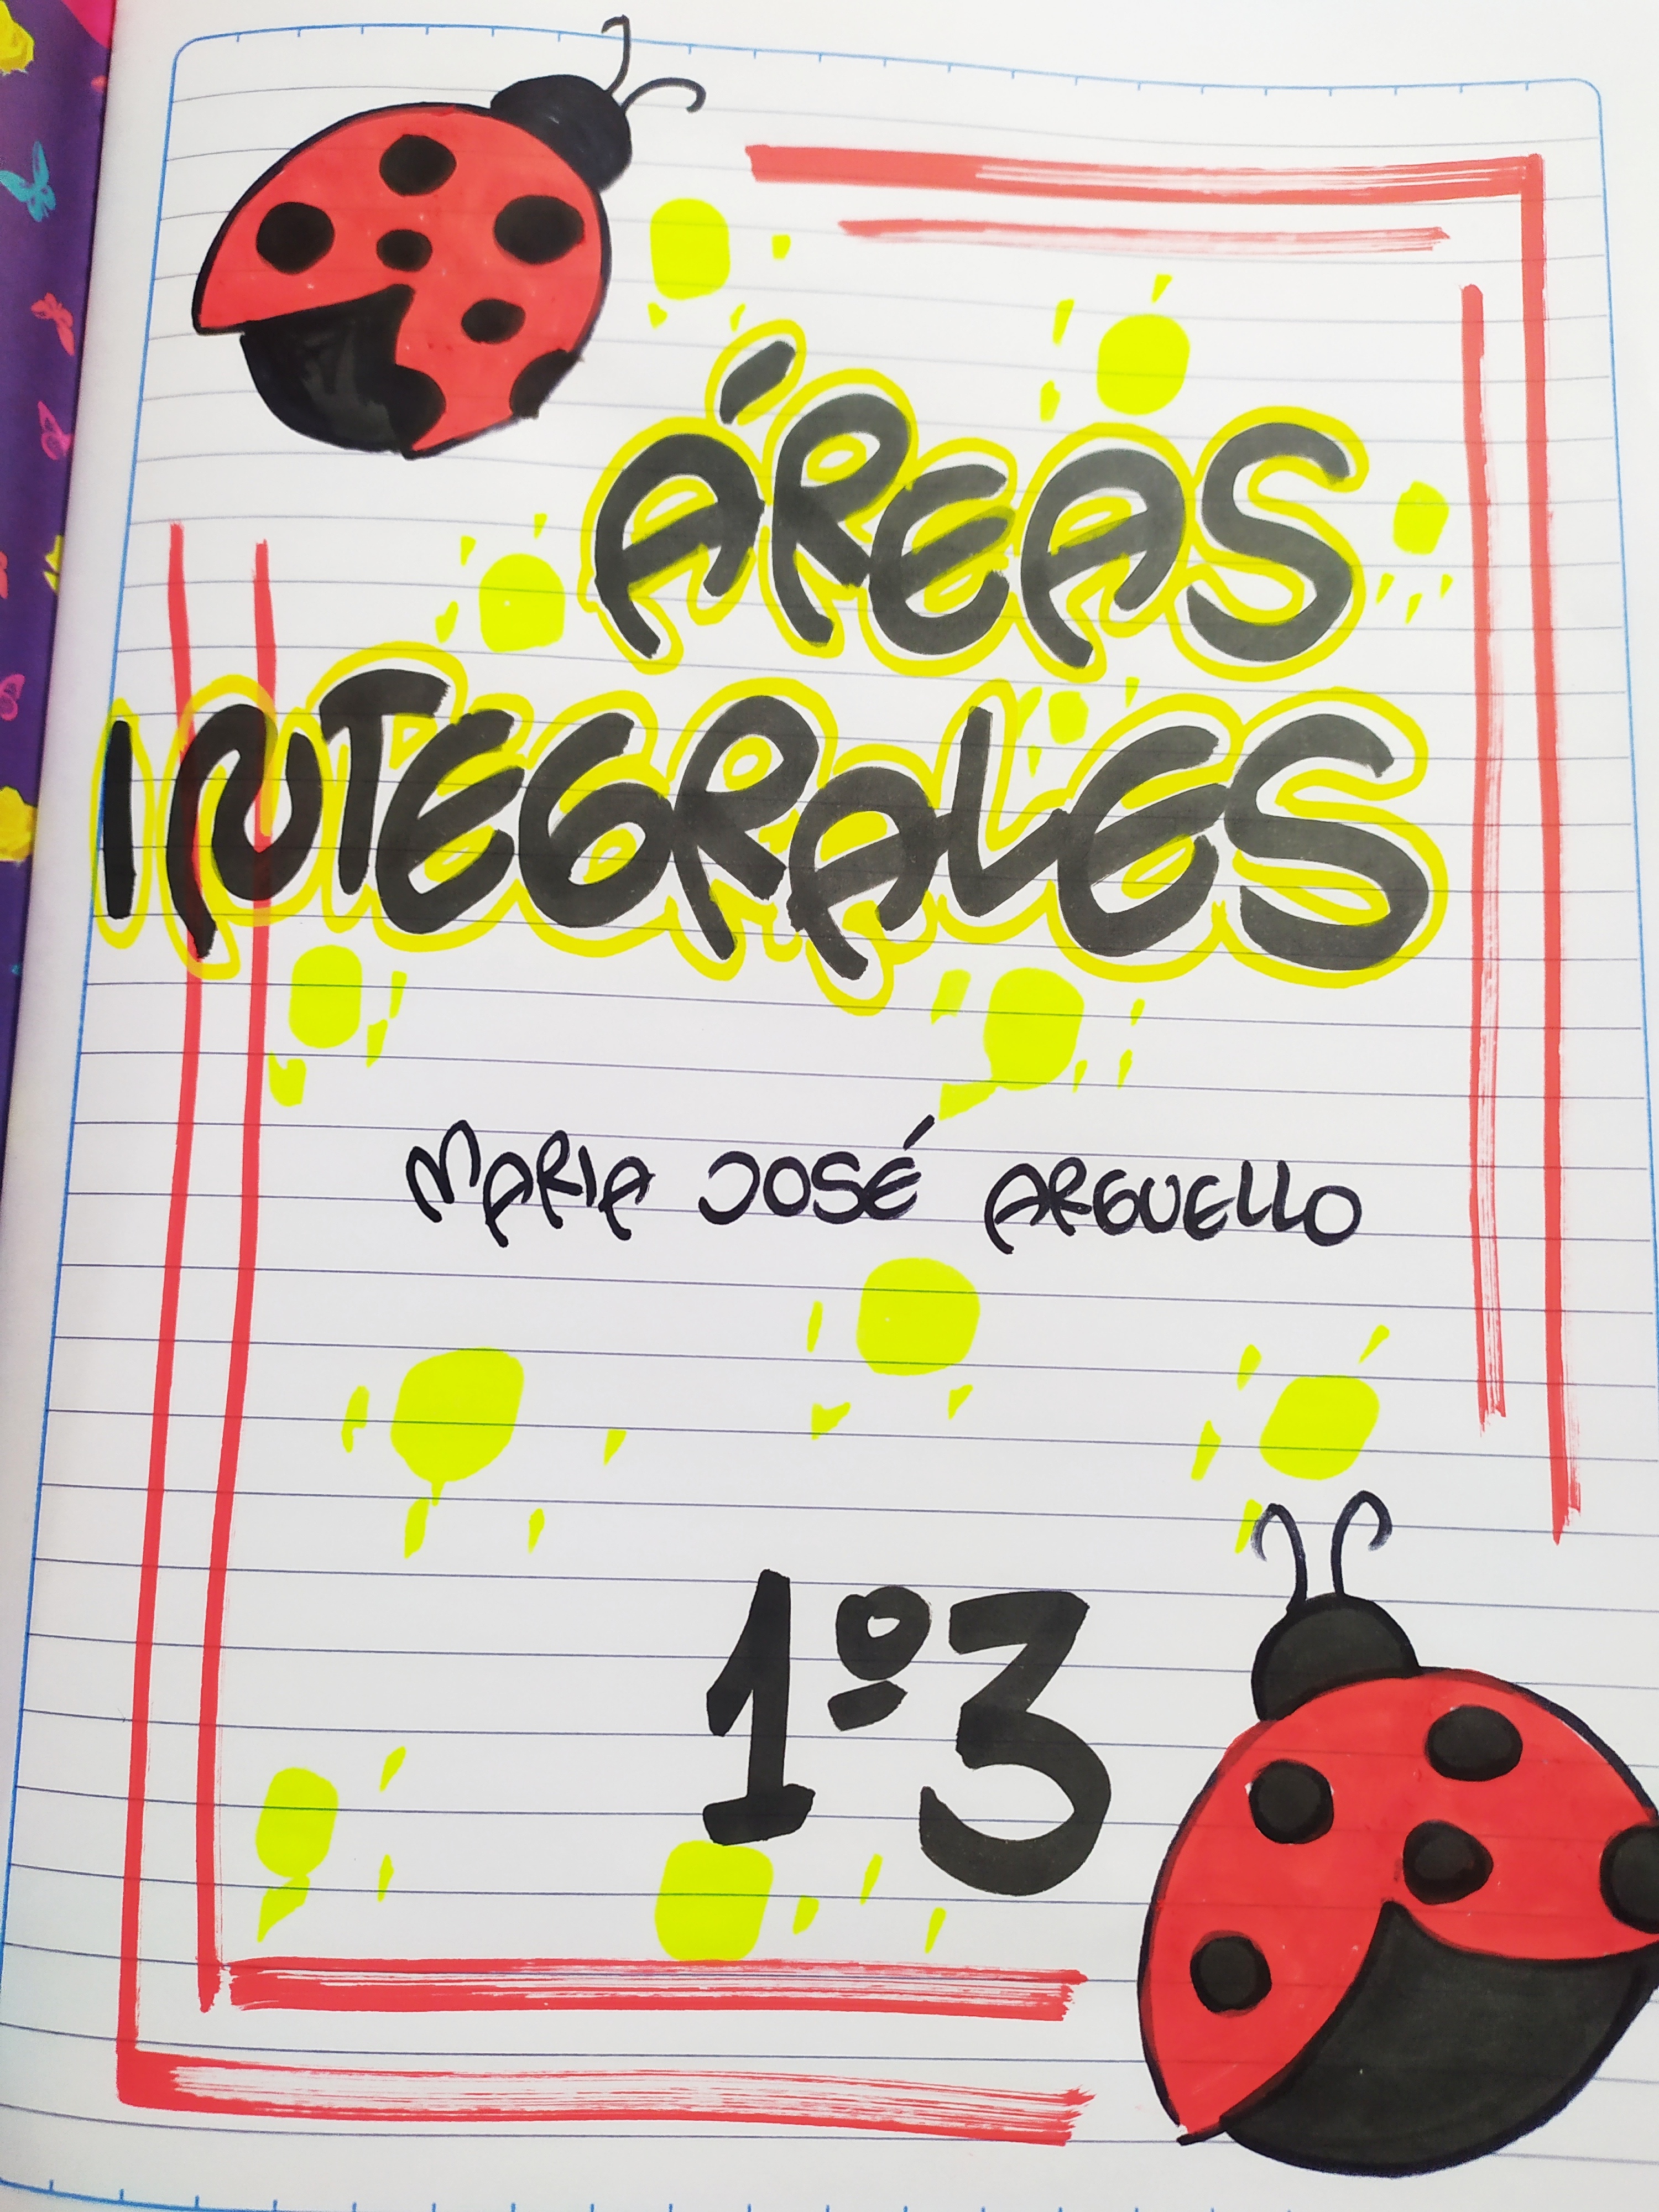 ÁREAS
INTEGRALES
MARIA JOSÉ ARGUELLO
1º3